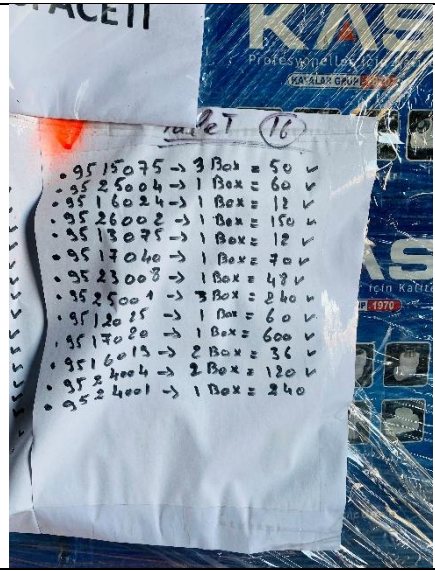 PACETİ
KAS
Profesyoneller için
KAYALAR GRUP
Pallet 16
• 9515075 → 3 Box = 50 ✓
• 9525004 → 1 Box = 60 ✓
• 9516024 → 1 Box = 12 ✓
• 9526002 → 1 Box = 150 ✓
• 9513075 → 1 Box = 12 ✓
• 9517040 → 1 Box = 70 ✓
• 9523008 → 1 Box = 48 ✓
• 9525001 → 3 Box = 240 ✓
• 9512025 → 1 Box = 60 ✓
• 9517020 → 1 Box = 600 ✓
• 9516019 → 2 Box = 36 ✓
• 9524004 → 2 Box = 120 ✓
• 9524001 → 1 Box = 240
AS
için Kalite
1970